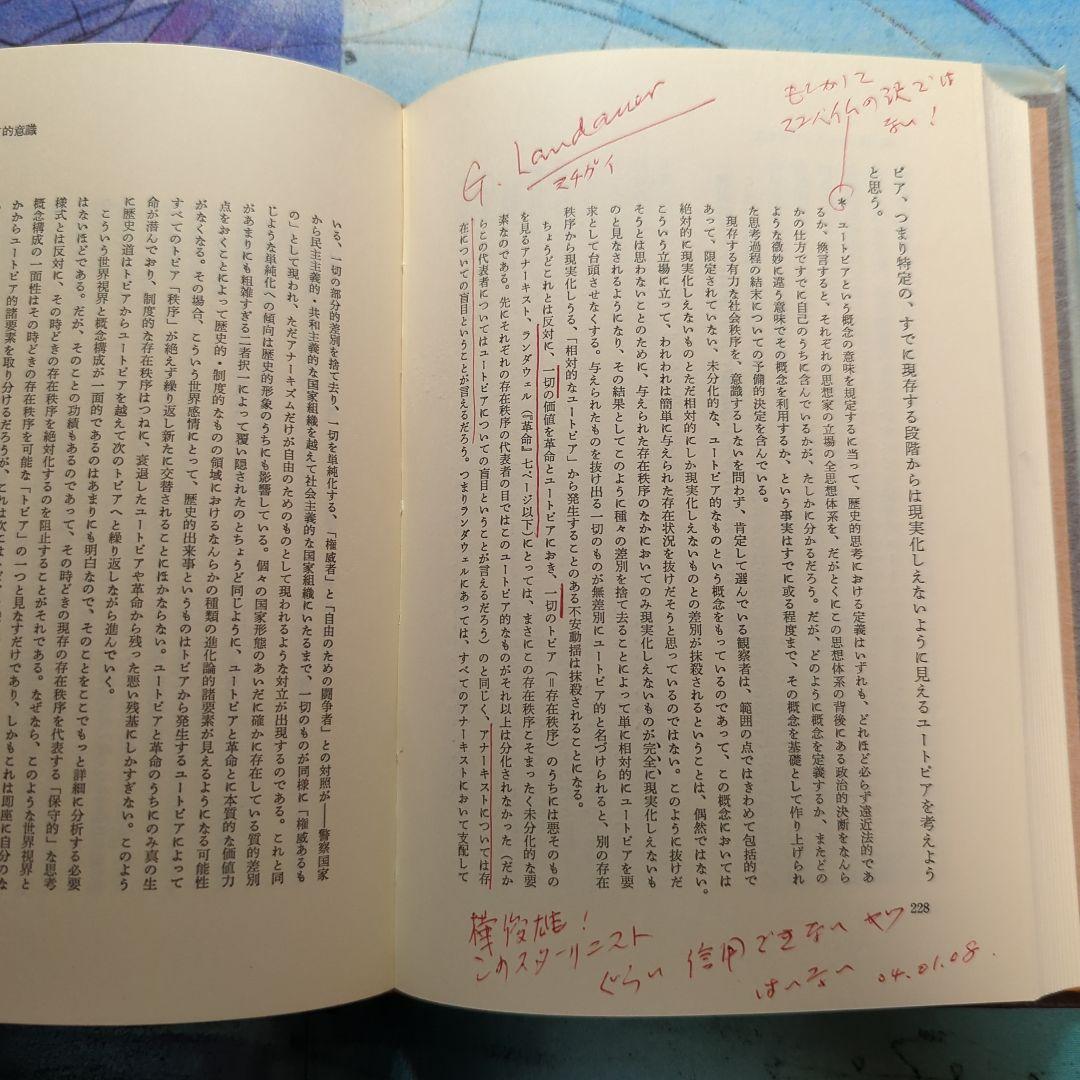 もしかして
の訳では
ない!
G. Landauer
マチガイ
ピア、つまり特定の、すでに現存する段階からは現実化しえないように見えるユートピアを考えよう
と思う。
* ユートピアという概念の意味を規定するに当って、歴史的思考における定義はいずれも、どれほど必らず遠近法的であ
るか、換言すると、それぞれの思想家の立場の全思想体系を、だがとくにこの思想体系の背後にある政治的決断をなんら
かの仕方ですでに自己のうちに含んでいるかが、たしかに分かるだろう。だが、どのように概念を定義するか、またどの
ような微妙に違う意味でその概念を利用するか、という事実はすでに或る程度まで、その概念を基礎として作り上げられ
た思考過程の結末についての予備的決定を含んでいる。
現存する有力な社会秩序を、意識するしないを問わず、肯定して選んでいる観察者は、範囲の点ではきわめて包括的で
あって、限定されていない、未分化的な、ユートピア的なものという概念をもっているのであって、この概念においては
絶対的に現実化しえないものとただ相対的にしか現実化しえないものとの差別が抹殺されるということは、偶然ではない。
こういう立場に立って、われわれは簡単に与えられた存在状況を抜けだそうと思っているのではない。このように抜けだ
そうとは思わないことのために、与えられた存在秩序のなかにおいてのみ現実化しえないものが完全に現実化しえないも
のと見なされるようになり、その結果としてこのように種々の差別を捨て去ることによって単に相対的にユートピアを要
求として台頭させなくする。与えられたものを抜け出る一切のものが無差別にユートピア的と名づけられると、別の存在
秩序から現実化しうる、「相対的なユートピア」から発生することのある不安動揺は抹殺されることになる。
ちょうどこれとは反対に、一切の価値を革命とユートピアにおき、一切のトピア(=存在秩序)のうちには悪そのもの
を見るアナーキスト、ランダウェル(『革命』七ページ以下)にとっては、まさにこの存在秩序こそまったく未分化的な要
素なのである。先にそれぞれの存在秩序の代表者の目ではこのユートピア的なものがそれ以上は分化されなかった(だか
らこの代表者についてはユートピアについての盲目ということが言えるだろう)のと同じく、アナーキストについては存
在についての盲目ということが言えるだろう。つまりランダウェルにあっては、すべてのアナーキストにおいて支配して
228
樺俊雄!
このスターリニスト
ぐらい 信用できないヤツ
はいない 04.01.08.
的意識
いる、一切の部分的差別を捨て去り、一切を単純化する、「権威者」と「自由のための闘争者」との対照が――警察国家
から民主主義的・共和主義的な国家組織を越えて社会主義的な国家組織にいたるまで、一切のものが同様に「権威あるも
の」として現われ、ただアナーキズムだけが自由のためのものとして現われるような対立が出現するのである。これと同
じような単純化への傾向は歴史的形象のうちにも影響している。個々の国家形態のあいだに確かに存在している質的差別
があまりにも粗雑すぎる二者択一によって覆い隠されたのとちょうど同じように、ユートピアと革命とに本質的な価値力
点をおくことによって歴史的・制度的なものの領域におけるなんらかの種類の進化論的諸要素が見えるようになる可能性
がなくなる。その場合、こういう世界感情にとって、歴史的出来事というものはトピアから発生するユートピアによって
すべてのトピア「秩序」が絶えず繰り返し新たに交替されることにほかならない。ユートピアと革命のうちにのみ真の生
命が潜んでおり、制度的な存在秩序はつねに、衰退したユートピアや革命から残った悪い残基にしかすぎない。このよう
に歴史の道はトピアからユートピアを越えて次のトピアへと繰り返しながら進んでいく。
こういう世界視界と概念構成が一面的であるのはあまりにも明白なので、そのことをここでもっと詳細に分析する必要
はないほどである。だが、そのことの功績もあるのであって、その時どきの現存の存在秩序を代表する「保守的」な思考
様式とは反対に、その時どきの存在秩序を絶対化するのを阻止することがそれである。なぜなら、このような世界視界と
概念構成の一面性はその時どきの存在秩序を可能な「トピア」の一つと見なすだけであり、しかもこれは即座に自分のな
かからユートピア的諸要素を取り分けるだろうが、これは次には